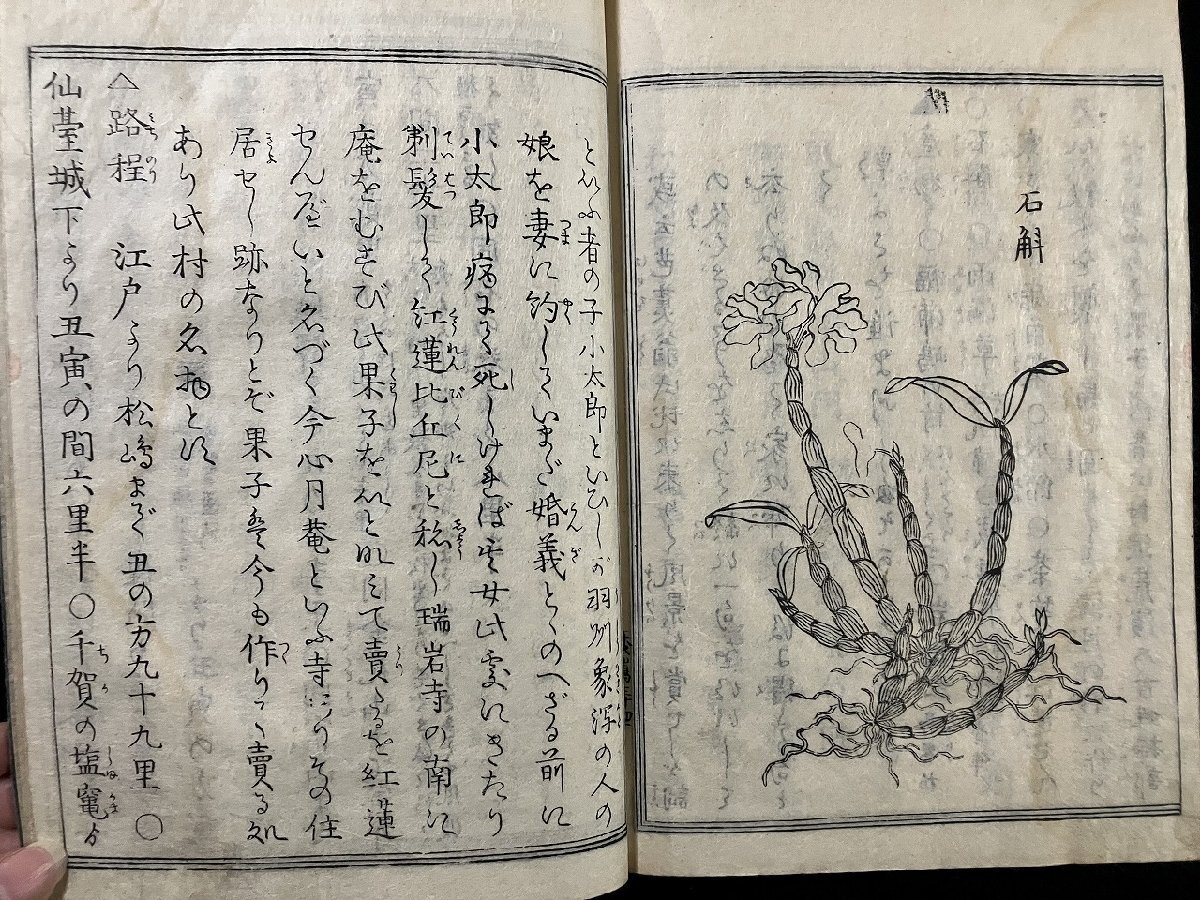 石斛
といふ者の子小太郎といひしが羽州象潟の人の
娘を妻に約していまだ婚義とゝのへざる前に
小太郎病にて死しければ其女此処にきたり
剃髪して紅蓮比丘尼と称し瑞岩寺の南に
庵をむすび此果子をいとなミて賣たるを紅蓮
せんべいと名づく今心月菴といふ寺ありその住
居せし跡なりとぞ果子も今も作りて賣る処
あり此村の名物とす
△路程 江戸より松嶋まで丑の方九十九里 ○
仙臺城下より丑寅の間六里半 ○千賀の塩竈より